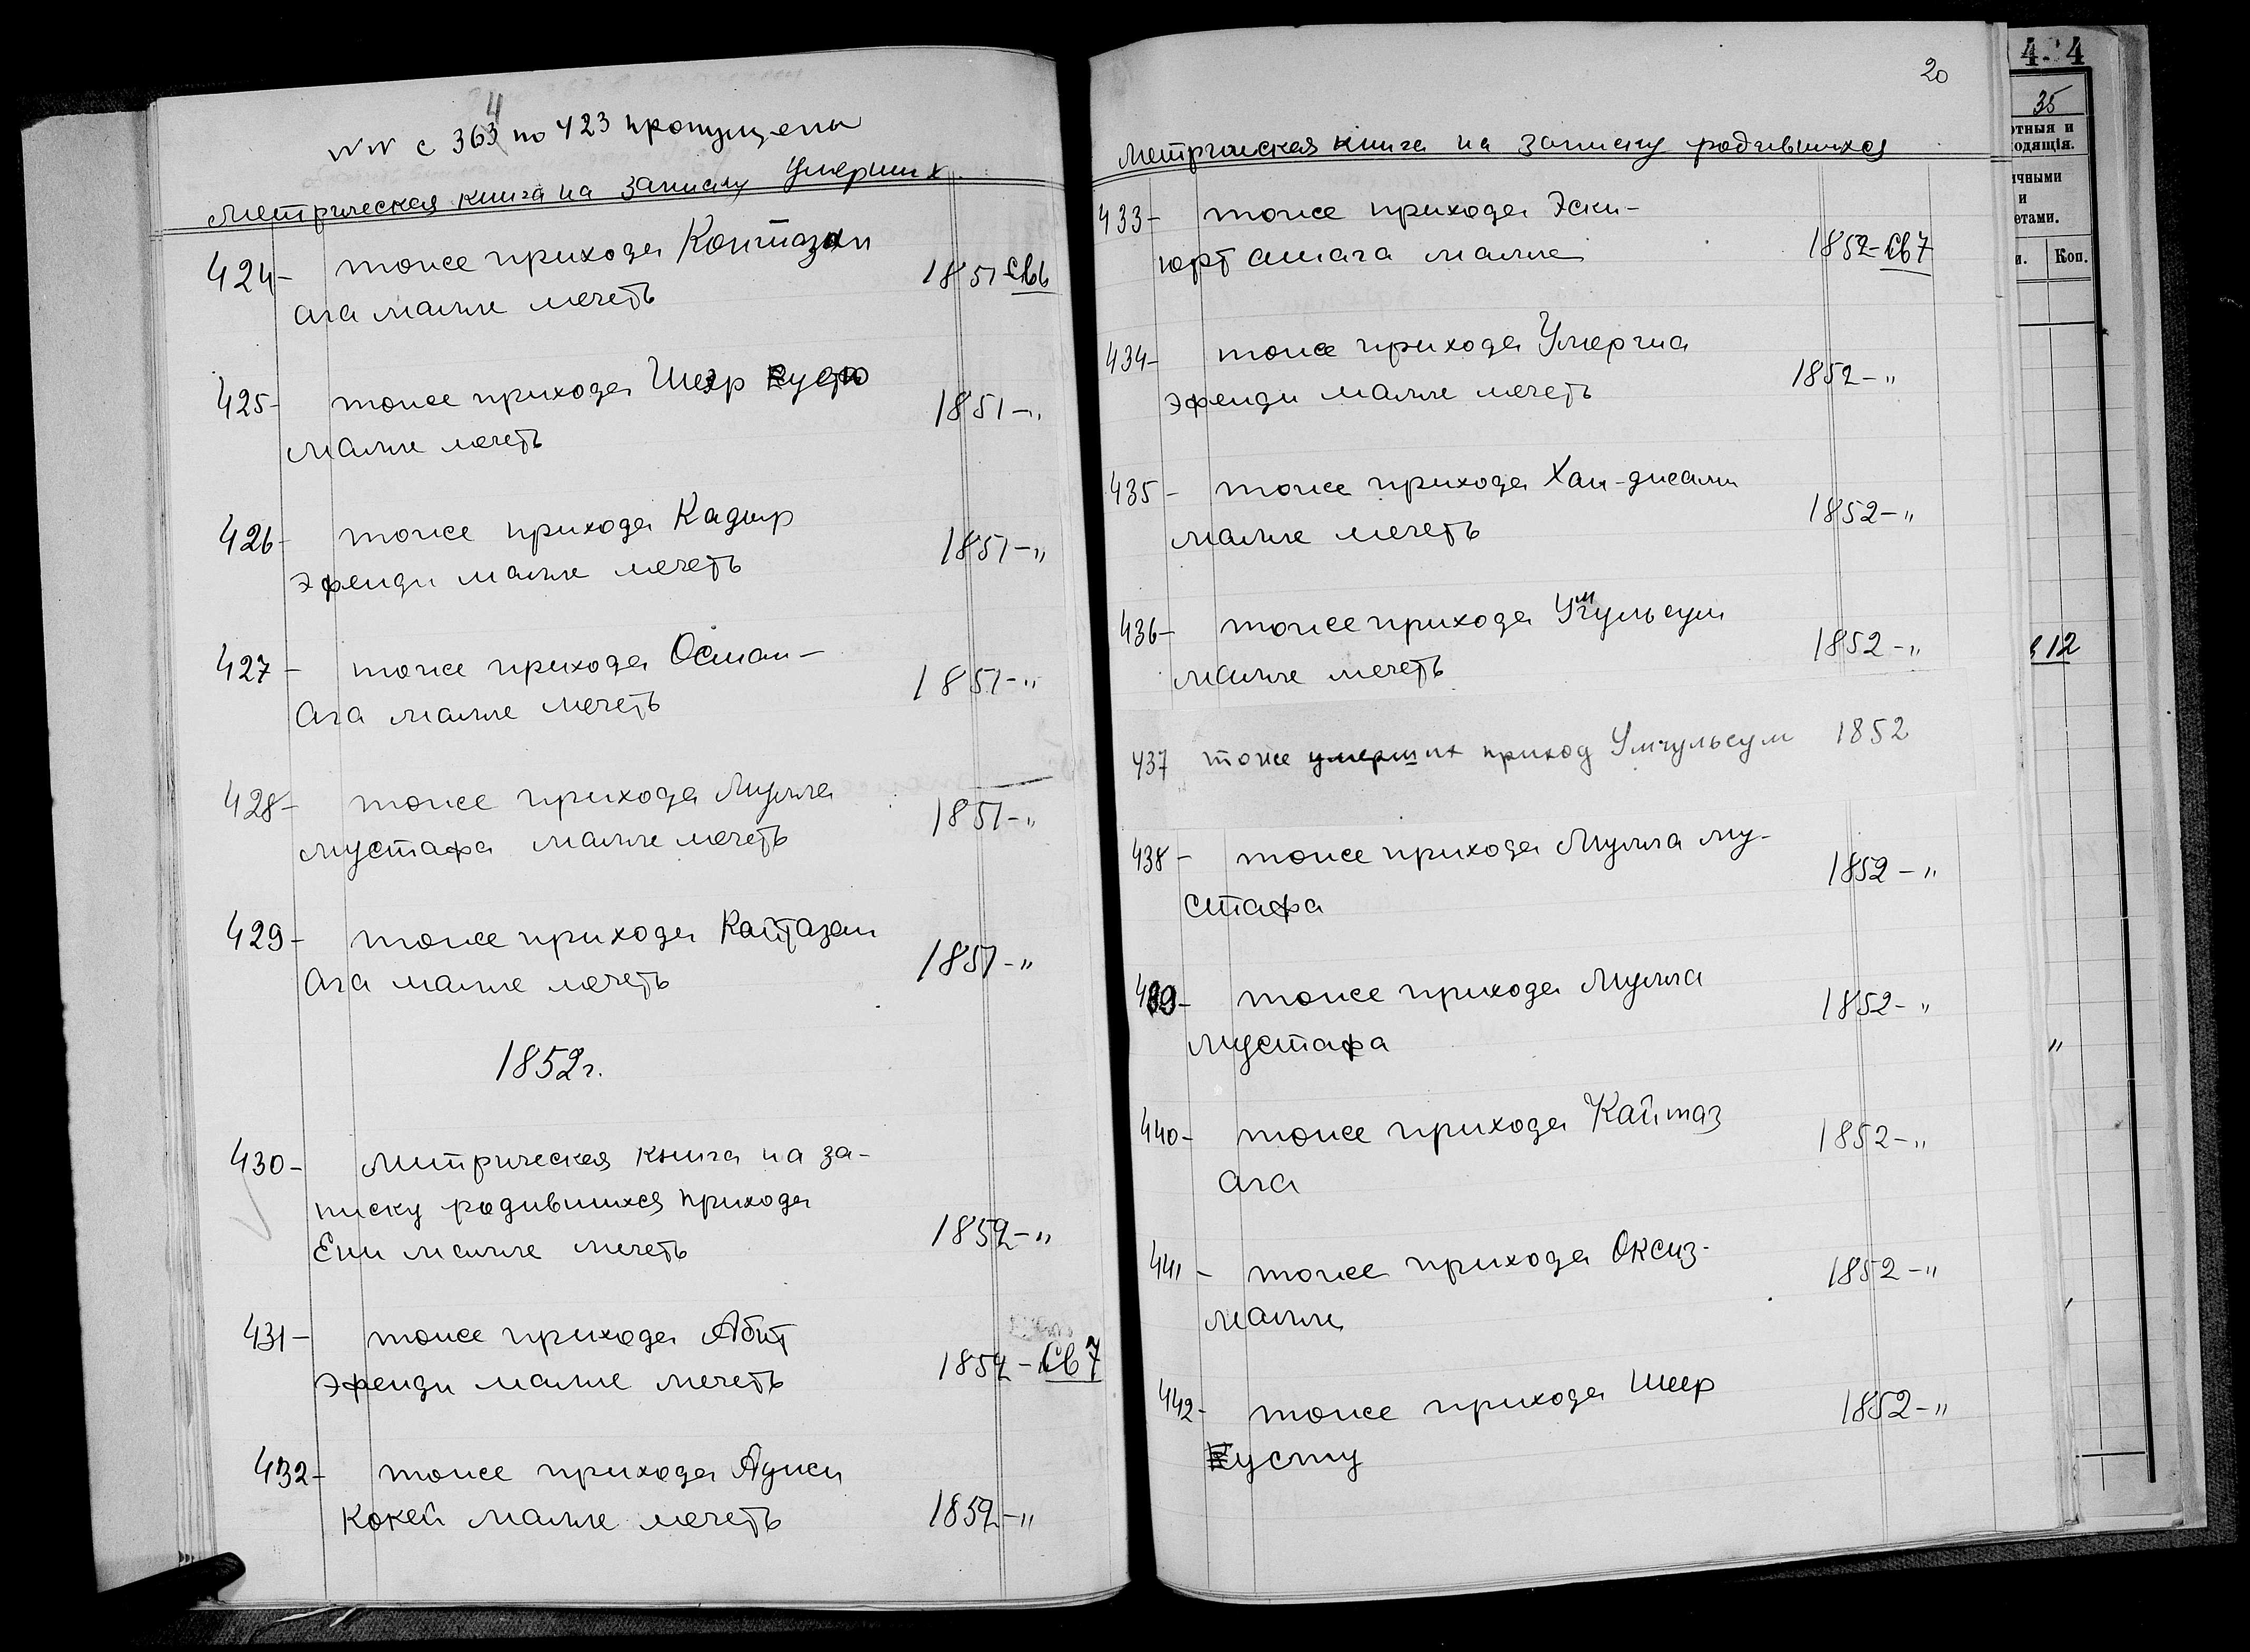 4
NN с 363 по 423 пропущены
Метрическая книга на записку умерших
424- тоже прихода Коитазан
ага малле мечеть 1851-св6
425- тоже прихода Шеэр
малле мечеть 1851-"
426- тоже прихода Кадыр
эфенди малле мечеть 1851-"
427- тоже прихода Осман-
ага малле мечеть 1851-"
428- тоже прихода Мулла
мустафа малле мечеть 1851-"
429- тоже прихода Кайтазан
ага малле мечеть 1851-"
1852г.
430- Метрическая книга на за-
писку родившихся прихода
Ени малле мечеть 1852-"
431- тоже прихода Абит
эфенди малле мечеть 1852-Св7
432- тоже прихода
Кокей малле мечеть 1852-"
20
Метрическая книга на записку родившихся
433- тоже прихода Эски-
юрт ашага малле 1852-Св7
434- тоже прихода
эфенди малле мечеть 1852-"
435- тоже прихода Хан-джами
малле мечеть 1852-"
436- тоже прихода Умгульсум
малле мечеть 1852-"
437 тоже умерших приход Умгульсум 1852
438- тоже прихода Мулла му-
стафа 1852-"
439- тоже прихода Мулла
мустафа 1852-"
440- тоже прихода Кайтаз
ага 1852-"
441- тоже прихода Оксиз-
малле 1852-"
442- тоже прихода Шеер
усту 1852-"
4. 4
35
отныя и
одящія.
ичными
и
етами.
Коп.
12
"